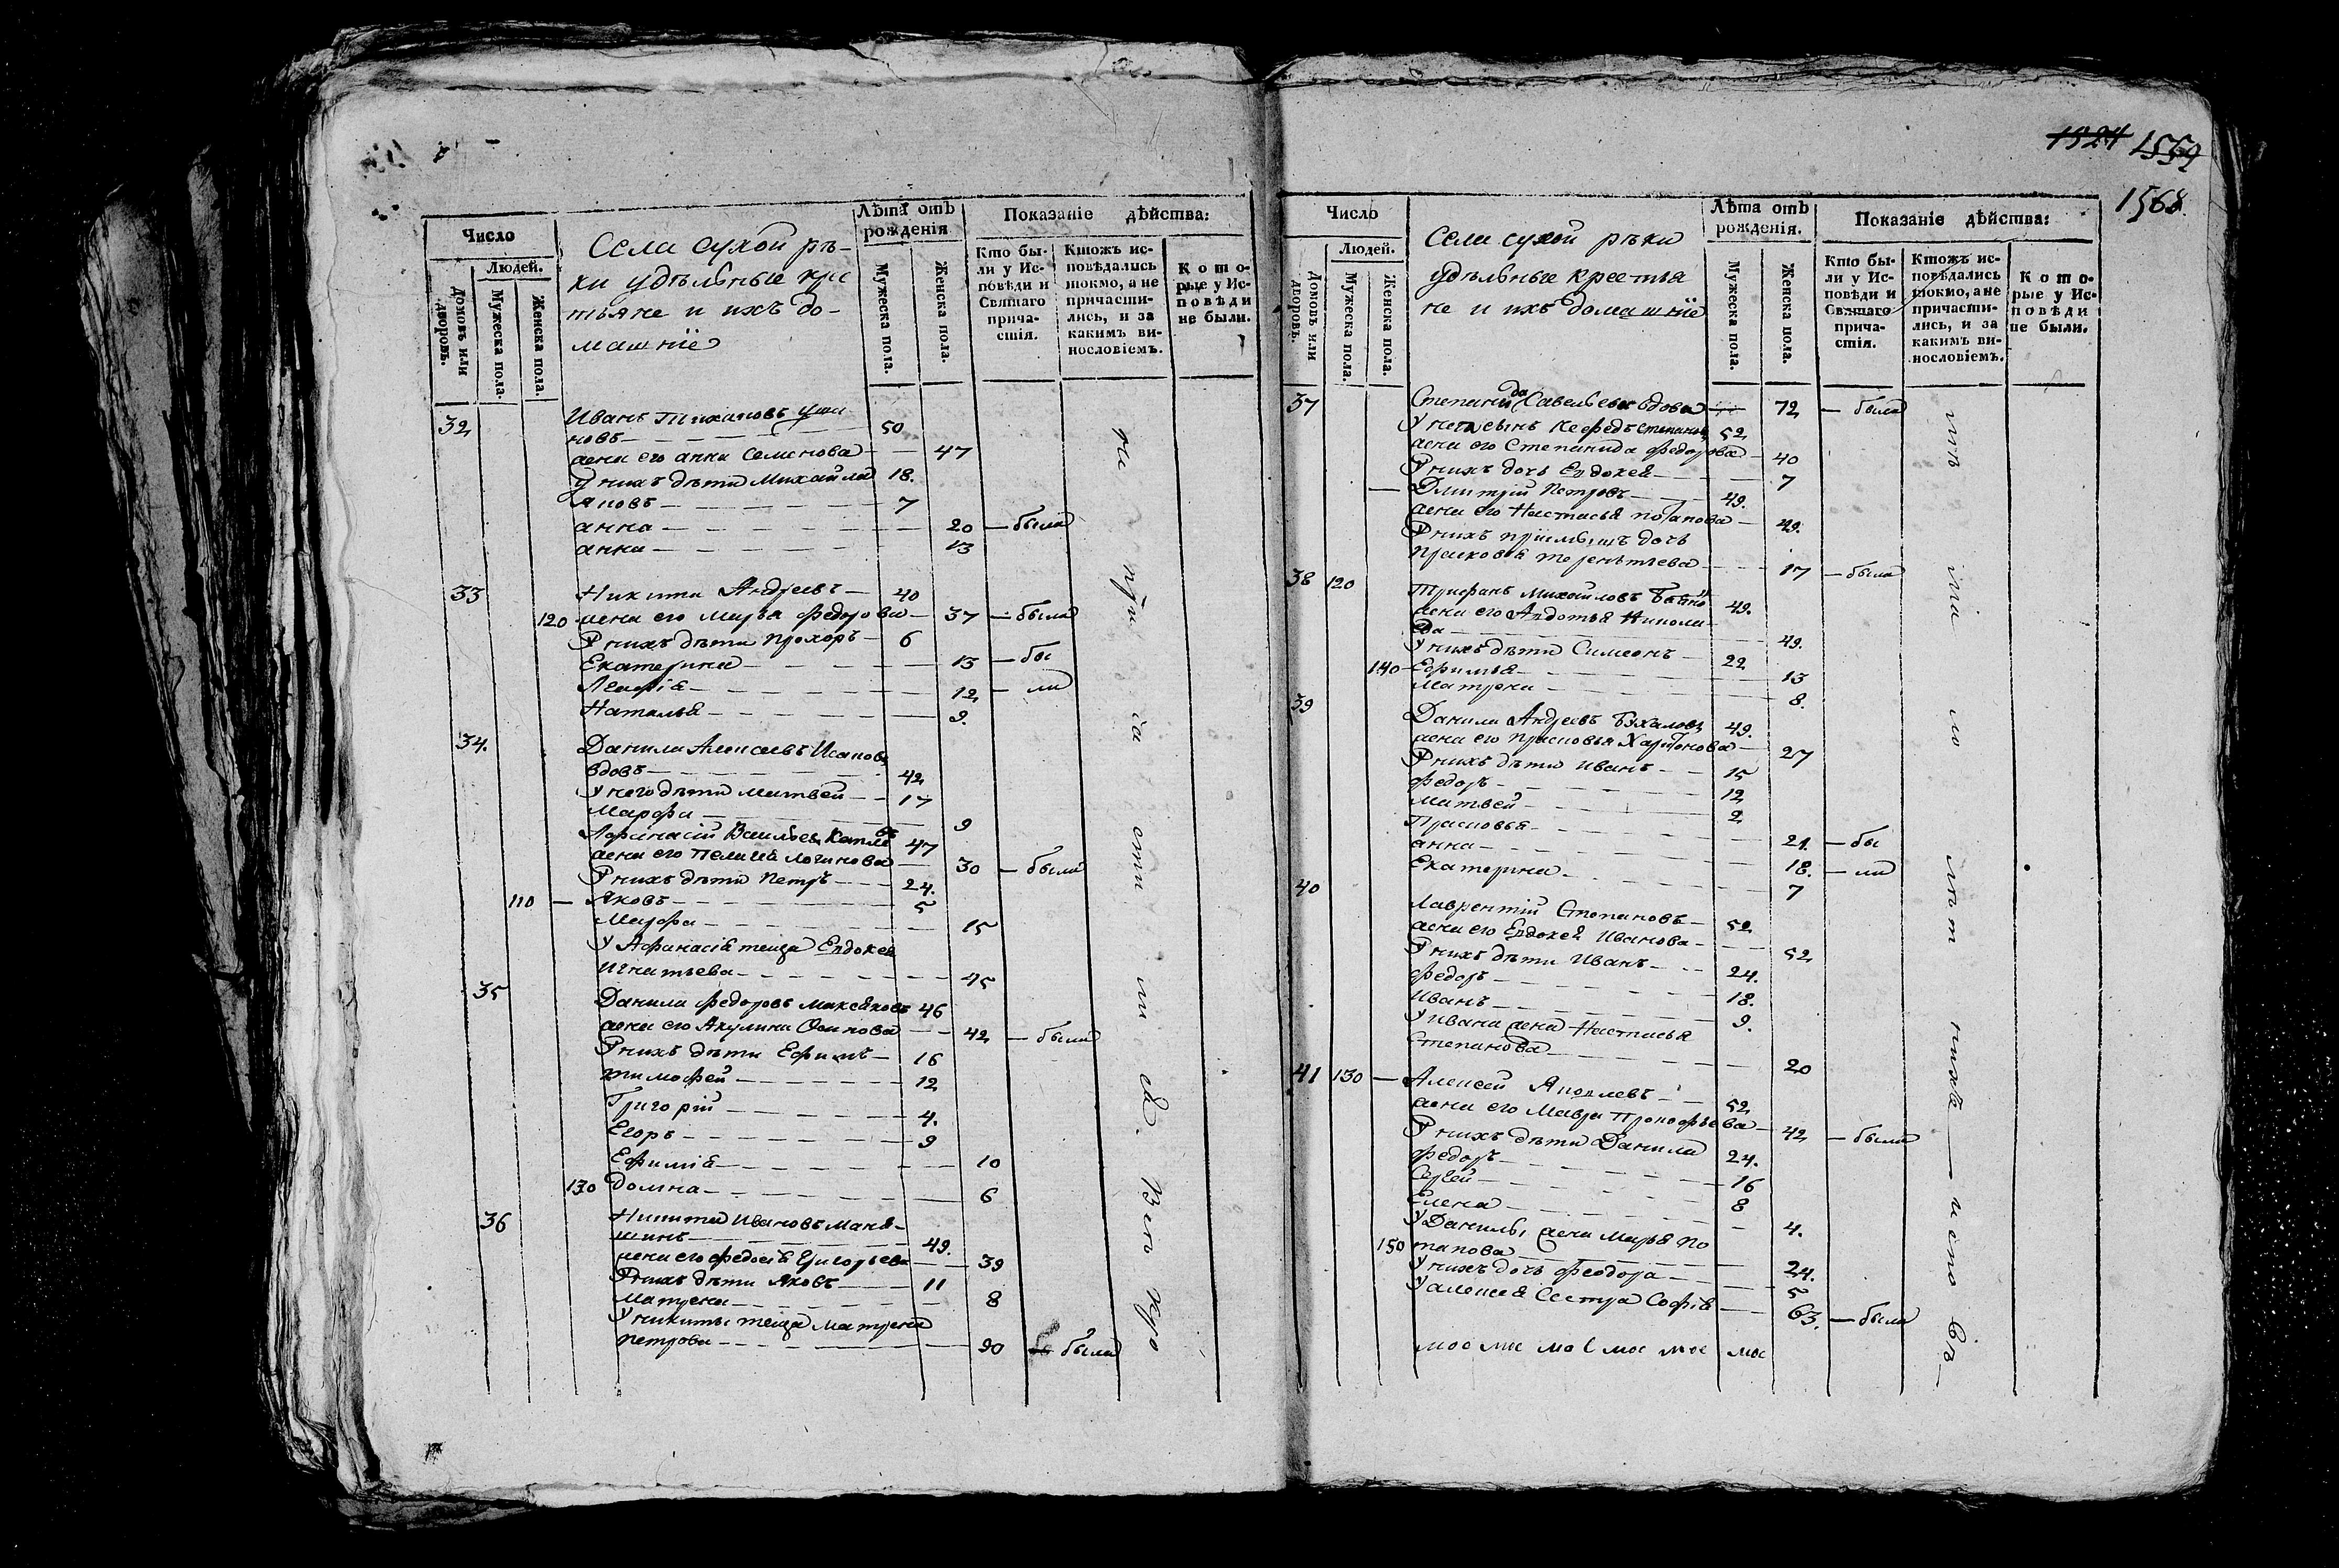 Число
Людей.
Домовъ или дворовъ.
Мужеска пола.
Женска пола.
Села сухой рѣ-
ки удѣльные крес
тьяне и ихъ до-
машнїе
Лѣта отъ рожденія
Мужеска пола.
Женска пола.
Показаніе дѣйства:
Кто бы-
ли у Ис-
повѣди и
Святаго
прича-
стія.
Ктожъ ис-
повѣдались
токмо, а не
причасти-
лись, и за
какимъ ви-
нословіемъ.
Кото-
рые у Ис-
повѣди
не были.
32 Иванъ Тихановъ
новъ — 50
жена его анна Семенова — 47
У нихъ дѣти Михайла 18.
Яковъ — 7
анна — 20 — были
анна — 13
33 Никита Андреевъ — 40
120 жена его Марья Федорова — 37 — были
У нихъ дѣти Прохоръ — 6
Екатерина — 13 — бы
Агафїя — 12 — ли
Наталья — 9.
34. Данила Алексеевъ Исаповъ
вдовъ — 42
У него дѣти Матвей — 17
Марфа — 9
Афанасїй Васильевъ 47
жена его Пелагея Логинова — 30 — были
У нихъ дѣти Петръ — 24.
110 — Яковъ — 5
Марфа — 15
У Афанасїя теща Евдокея
Игнатьева — 45
35 Данила Федоровъ Максяковъ 46
жена его Акулина Осипова — 42 — были
У нихъ дѣти Ефимъ — 16
Тимофей — 12
Григорїй — 4.
Егоръ — 9
Ефимїя — 10
130 Домна — 6
36 Никита Ивановъ Маня-
шинъ — 49.
жена его Федосїя Григорьева — 39
У нихъ дѣти Яковъ — 11
Матрена — 8
У никиты теща Матрена
петрова — 90 — была
1524 1559
1568.
Число
Людей.
Домовъ или дворовъ.
Мужеска пола.
Женска пола.
Села сухой рѣки
удѣльные крестья
не и ихъ домашнїе
Лѣта отъ рожденія.
Мужеска пола.
Женска пола.
Показаніе дѣйства:
Кто бы-
ли у Ис-
повѣди и
Святаго
прича-
стія.
Ктожъ ис-
повѣдались
токмо, а не
причасти-
лись, и за
какимъ ви-
нословіемъ.
Кото-
рые у Ис-
повѣди
не были.
37 Степанида Савельева вдова — 72 — была
У нея сынъ Степановъ 52
жена его Степанида Федорова — 40
У нихъ дочь Евдокея — 7
— Дмитрїй Петровъ — 49.
жена его Настасья Потапова — 49.
У нихъ прїемышъ дочь
Прасковья Терентьева — 17 — была
38 120 Трифанъ Михайловъ 49.
жена его Авдотья Никола
ва — 49.
У нихъ дѣти Симеонъ — 22
140 — Ефимья — 13
Матрена — 8.
39 Данила Андреевъ Бухаловъ 49.
жена его Прасковья Харитонова — 27
У нихъ дѣти Иванъ — 15
Федоръ — 12
Матвей — 2
Прасковья — 21. — бы
анна — 18. — ли
Екатерина — 7
40 Лаврентїй Степановъ — 52
жена его Евдокея Иванова — 52
У нихъ дѣти Иванъ — 24.
Федоръ — 18.
Иванъ — 9.
У ивана жена Настасья
Степанова — 20
41 130 — Алексей Яковлевъ — 52
жена его Мавра Прокофьева — 42 — были
У нихъ дѣти Данила 24.
Федоръ — 16
Сергей — 8
Елена — 4.
У Данилы жена Марья По
150 тапова — 24.
У нихъ дочь Феодора — 5
У алексея Сестра Софїя — 63. — была